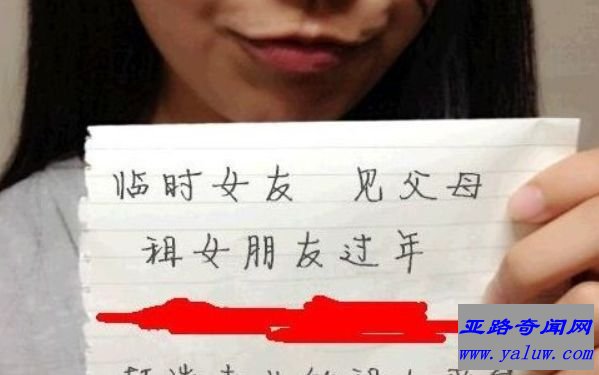 临时女友 见父母
租女朋友过年
亚路奇闻网
www.yaluw.com